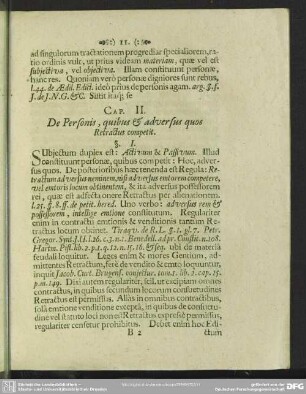 11.
ad singulorum tractationem progrediar specialiorem, ratio ordinis vult, ut prius videam materiam, quæ vel est
subjectiva, vel objectiva. Illam constituunt personæ,
hanc res. Quoniam verò personæ digniores sunt rebus,
l.44. de Ædil. Edict. ideò prius de personis agam. arg. §. f.
J. de J. N. G. & C. Sitit itaque
CAP. II.
De Personis, quibus & adversus quos
Retractus competit.
§. I.
SUbjectum duplex est: Activum & Passivum. Illud
constituunt personæ, quibus competit: Hoc, adversus quos. De posterioribus hæc tenenda est Regula: Retractum adversus neminem, nisi adversus emtorem competere,
vel emtoris locum obtinentem, & ità adversus possessorem
rei, quæ est adfecta onere Retractus per alienationem.
l.25. §. 8. ff. de petit. hered. Uno verbo: adversus rem &
possessorem, intellige emtione constitutum. Regulariter
enim in contractu emtionis & venditionis tantùm Retractus locum obtinet. Tiraqu. de R. L. §. 1. gl. 7. Petr.
Gregor. Synt. J. U. l. 26. c. 3. n. 1.
ubi de materia
feudali loquitur. Leges enim & mores Gentium, admittentes Retractum, ferè de vendito & emto loquuntur,
inquit Jacob. Curt. Brugens. conjectur. tom. 1. lib. 2. cap. 25.
p. m. 149. Dixi autem regulariter, scil. ut excipiam omnes
contractus, in quibus secundum locorum consvetudines
Retractus est permissus. Aliàs in omnibus contractibus,
solâ emtione venditione exceptâ, in quibus de consvetudine vel statuto loci non est Retractus expressè permissus,
regulariter censetur prohibitus. Debet enim hoc Edi-
B 2 ctum